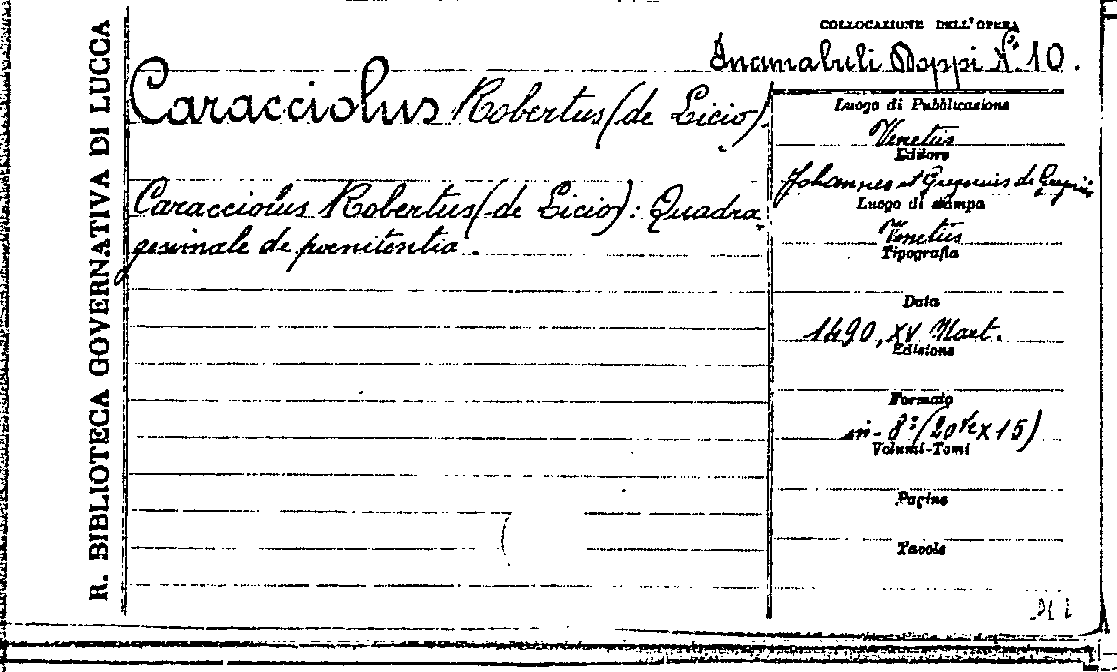 R. BIBLIOTECA GOVERNATIVA DI LUCCA
COLLOCAZIONE DELL'OPERA
Incunabuli Doppi N.° 10.
Caracciolus Robertus (de Licio).
Caracciolus Robertus (de Licio): Quadra
gesimale de poenitentia.
Luogo di Pubblicazione
Venetiis
Editore
Johannes et Gregorius de Gregoriis
Luogo di stampa
Venetiis
Tipografia
Data
1490, XV Mart.
Edizione
Formato
in-8° (20 1/2 x 15)
Volumi-Tomi
Pagine
Tavole